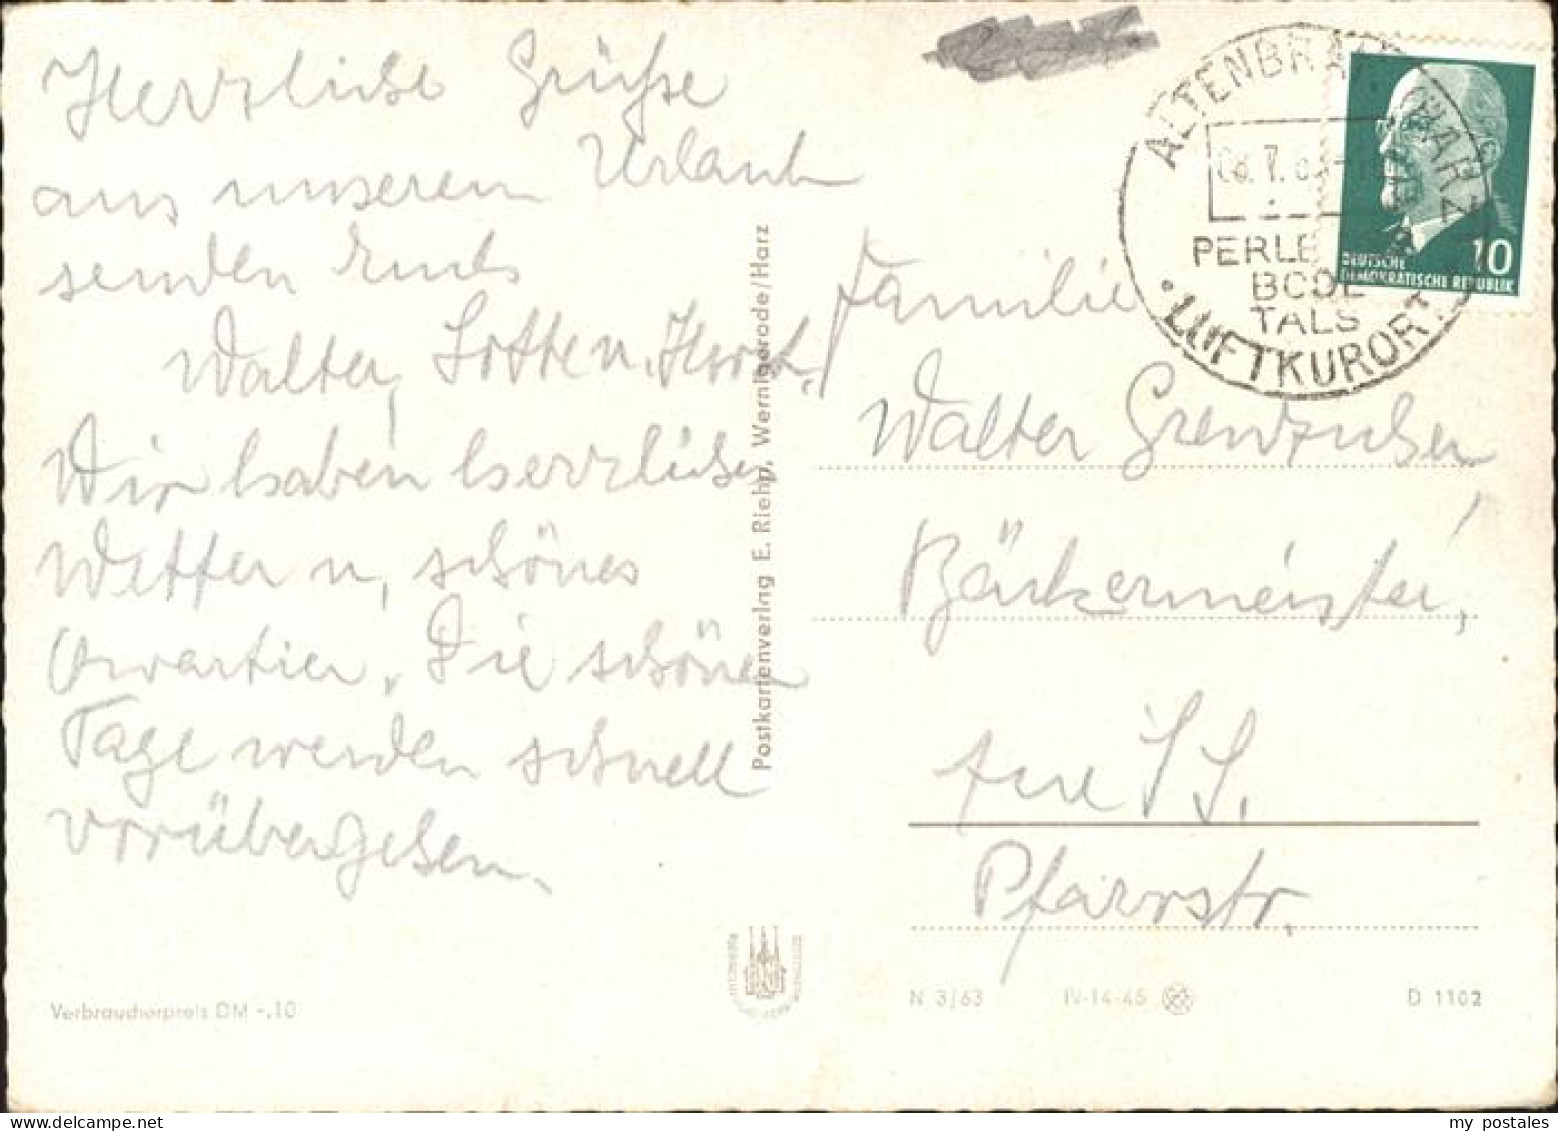 Herzliche Grüße
aus unserem Urlaub
senden Euch
Walter, Lotte u. Horst.
Wir haben herrliches
Wetter u. schönes
Quartier. Die schönen
Tage werden schnell
vorübergehen.
Verbraucherpreis DM -.10
Postkartenverlag E. Riehn, Wernigerode/Harz
ALTENBRAK (HARZ)
PERLE
BODE
TALS
· LUFTKUROR
10
DEUTSCHE
DEMOKRATISCHE REPUBLIK
Familie
Walter
Bäckermeister,
Pfarrstr.
N 3/63 IV-14-45 D 1102
my postales